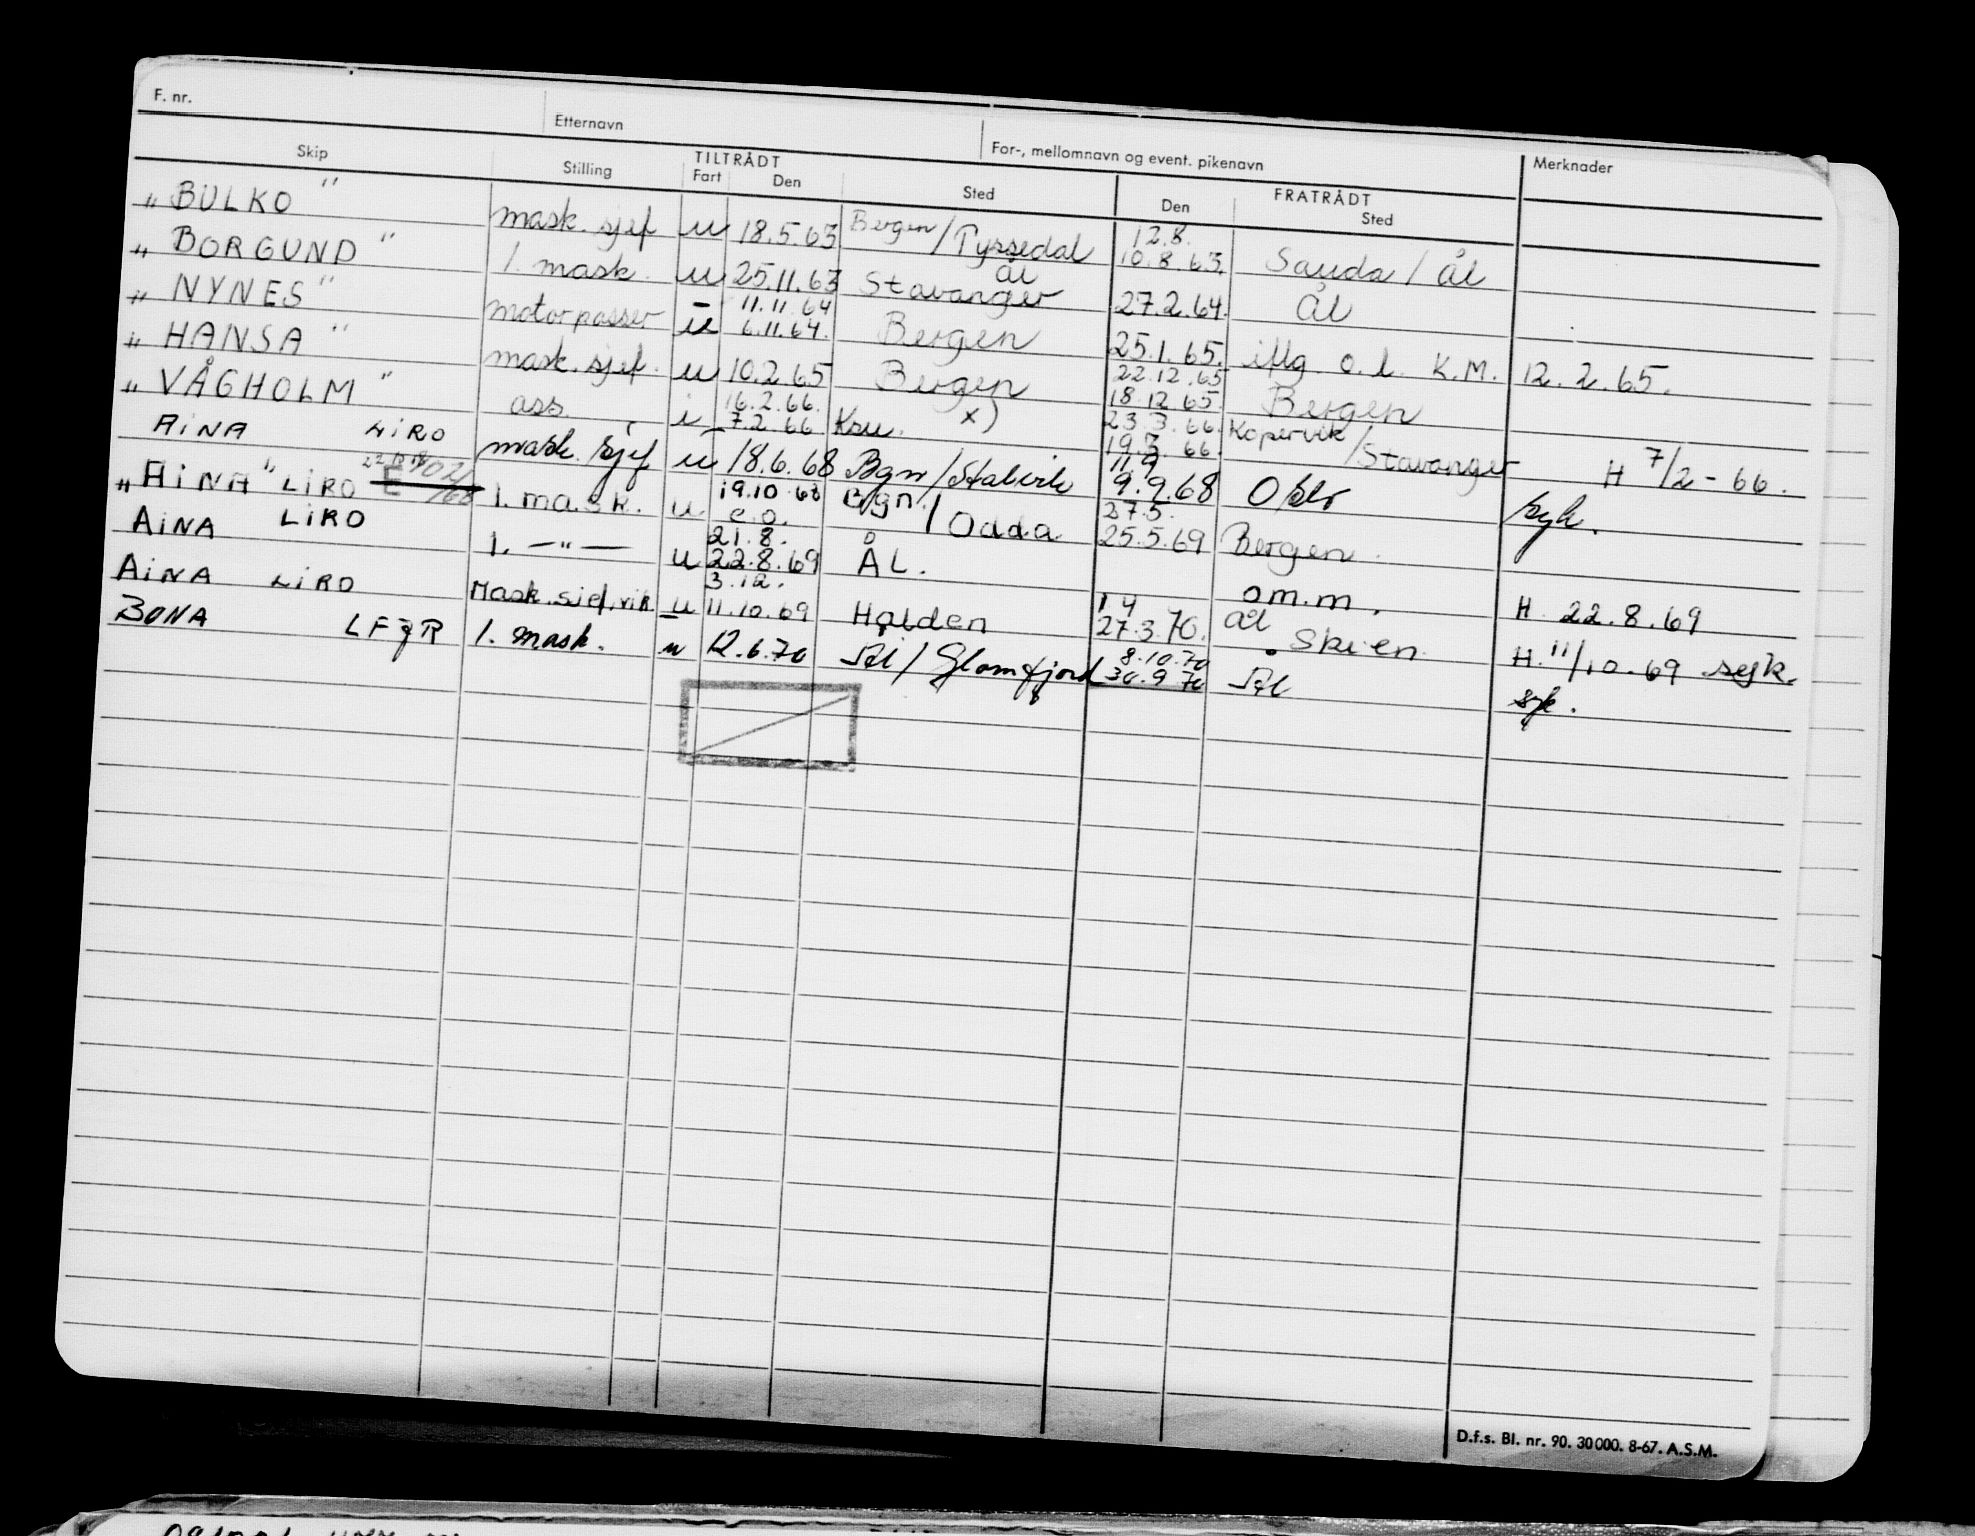 F. nr.
Etternavn
For-, mellomnavn og event. pikenavn
Merknader
Skip
Stilling
TILTRÅDT
Fart
Den
Sted
FRATRÅDT
Den
Sted
" BULKO " mask. sjef u 18.5.63 Bergen/Tyssedal 12.8. 10.8.63. Sauda / Ål
" BORGUND " 1. mask. u 25.11.63 Stavanger Ål 27.2.64. Ål
" NYNES " motorpasser u 11.11.64 6.11.64. Bergen 25.1.65. iflg. o.l. K.M. 12.2.65.
" HANSA " mask. sjef. u 10.2.65 Bergen 22.12.65 18.12.65. Bergen
" VÅGHOLM " ass. i 16.2.66. 7.2.66 x) 23.3.66. 19.3.66. Kopervik/Stavanger H 7/2-66.
AINA LIRO mask. sjef u 18.6.68 Bgn/ 11.9 9.9.68 Oslo syk.
" AINA " LIRO E 1. mask. u 19.10.68 e.o. Bgn. / Odda 27.5. 25.5.69 Bergen.
AINA LIRO 1. —"— u 21.8. 22.8.69 ÅL. om.m. H. 22.8.69
AINA LIRO Mask.sjef.vik u 3.12. 11.10.69 Halden 1.4 27.3.70. Ål Skien H. 11/10.69 syk.
BONA LFGR 1. mask. u 12.6.70 Ål/Glomfjord 8.10.70 30.9.70 Ål syk.
D.f.s. Bl. nr. 90. 30000. 8-67. A.S.M.